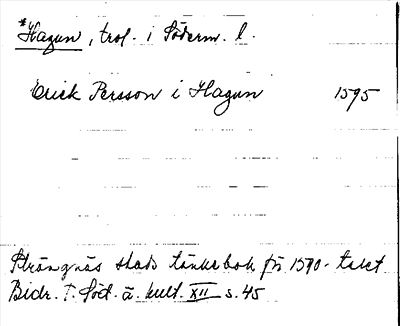 *Hagun, trol. i Söderm. l.
Erick Persson i Hagun 1595
Strängnäs stads tänkebok för 1590-talet
Bidr. T. Söd. ä. kult. XII s. 45